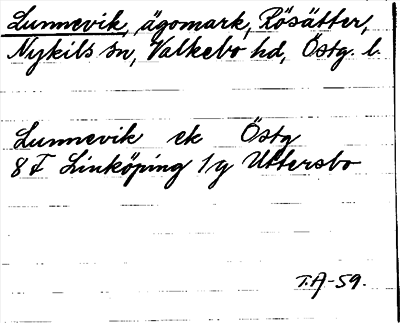 Lunnevik, ägomark, Rösätter,
Nykils sn, Valkebo hd, Östg. l.
Lunnevik ek Östg
8 F Linköping 1g Uttersbo
T.A-59.